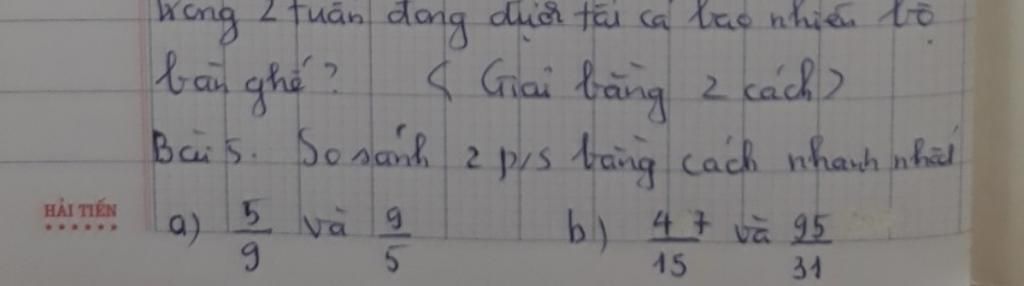 trong 2 tuần đóng được tất cả bao nhiêu bộ
bàn ghế? ( Giải bằng 2 cách)
Bài 5. So sánh 2 p/s bằng cách nhanh nhất
HẢI TIẾN
a) 5/9 và 9/5 b) 47/15 và 95/31